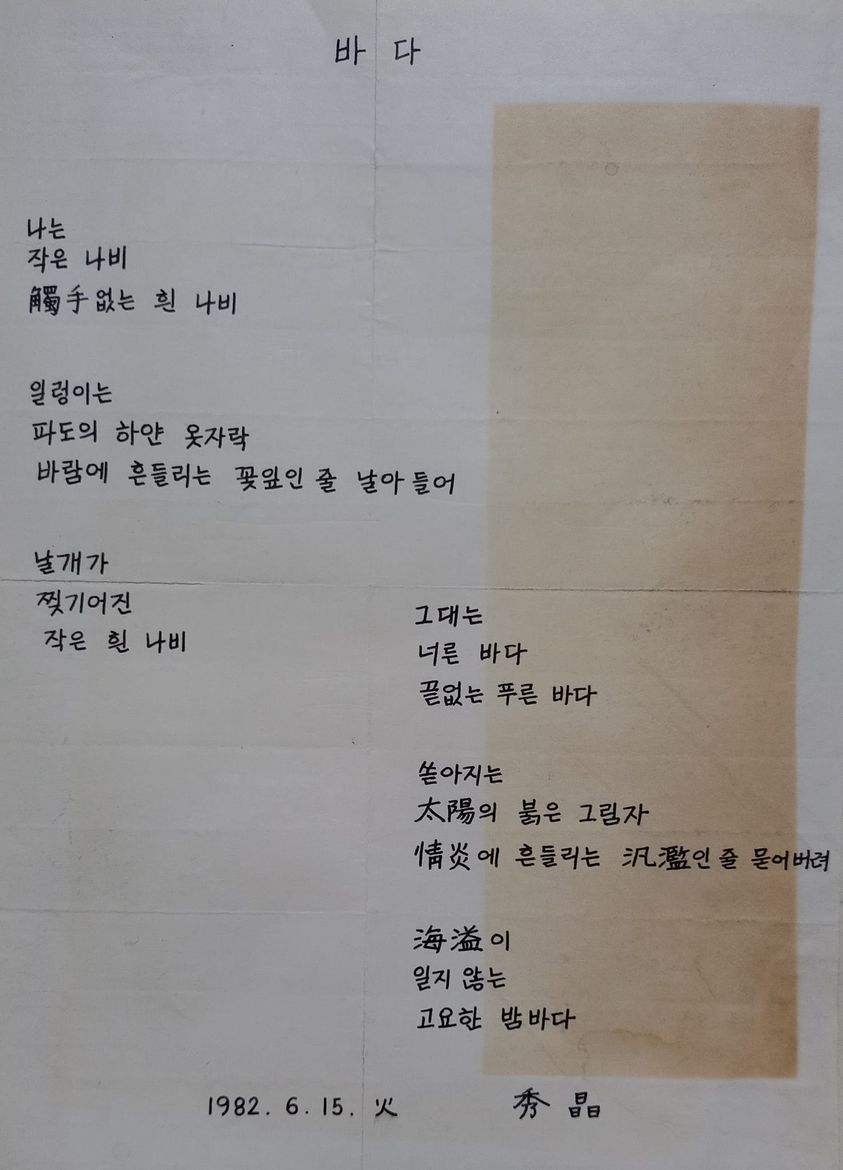 바 다
나는
작은 나비
觸手없는 흰 나비
일렁이는
파도의 하얀 옷자락
바람에 흔들리는 꽃잎인 줄 날아 들어
날개가
찢기어진
작은 흰 나비
그대는
너른 바다
끝없는 푸른 바다
쏟아지는
太陽의 붉은 그림자
情炎에 흔들리는 汎濫인 줄 묻어버려
海溢이
일지 않는
고요한 밤바다
1982. 6. 15. 火
秀晶